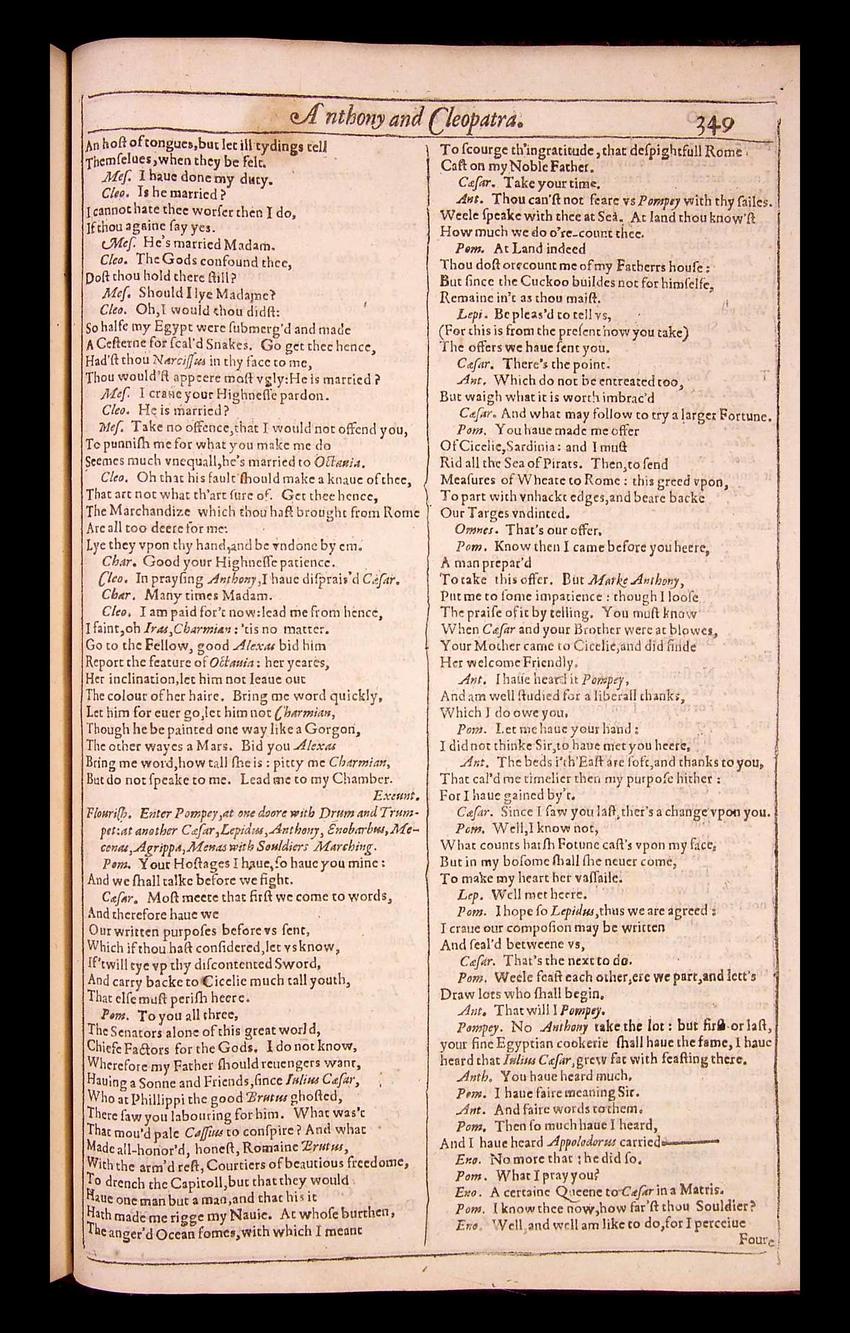 Anthony and Cleopatra.
349
An host of tongues, but let ill tydings tell
Themselues, when they be felt.
Mes. I haue done my duty.
Cleo. Is he married?
I cannot hate thee worser then I do,
If thou againe say yes.
Mes. He's married Madam.
Cleo. The Gods confound thee,
Dost thou hold there still?
Mes. Should I lye Madame?
Cleo. Oh, I would thou didst:
So halfe my Egypt were submerg'd and made
A Cesterne for scal'd Snakes. Go get thee hence,
Had'st thou Narcissus in thy face to me,
Thou would'st appeere most vgly: He is married?
Mes. I craue your Highnesse pardon.
Cleo. He is married?
Mes. Take no offence, that I would not offend you,
To punnish me for what you make me do
Seemes much vnequall, he's married to Octauia.
Cleo. Oh that his fault should make a knaue of thee,
That art not what th'art sure of. Get thee hence,
The Marchandize which thou hast brought from Rome
Are all too deere for me:
Lye they vpon thy hand, and be vndone by em.
Char. Good your Highnesse patience.
Cleo. In praysing Anthony, I haue disprais'd Cæsar.
Char. Many times Madam.
Cleo. I am paid for't now: lead me from hence,
I faint, oh Iras, Charmian: 'tis no matter.
Go to the Fellow, good Alexas bid him
Report the feature of Octauia: her yeares,
Her inclination, let him not leaue out
The colour of her haire. Bring me word quickly,
Let him for euer go, let him not Charmian,
Though he be painted one way like a Gorgon,
The other wayes a Mars. Bid you Alexas
Bring me word, how tall she is: pitty me Charmian,
But do not speake to me. Lead me to my Chamber.
Exeunt.
Flourish. Enter Pompey, at one doore with Drum and Trum-
pet: at another Cæsar, Lepidus, Anthony, Enobarbus, Me-
cenas, Agrippa, Menas with Souldiers Marching.
Pom. Your Hostages I haue, so haue you mine:
And we shall talke before we fight.
Cæsar. Most meete that first we come to words,
And therefore haue we
Our written purposes before vs sent,
Which if thou hast considered, let vs know,
If 'twill tye vp thy discontented Sword,
And carry backe to Cicelie much tall youth,
That else must perish heere.
Pom. To you all three,
The Senators alone of this great world,
Chiefe Factors for the Gods. I do not know,
Wherefore my Father should reuengers want,
Hauing a Sonne and Friends, since Iulius Cæsar,
Who at Phillippi the good Brutus ghosted,
There saw you labouring for him. What was't
That mou'd pale Cassius to conspire? And what
Made all-honor'd, honest, Romaine Brutus,
With the arm'd rest, Courtiers of beautious freedome,
To drench the Capitoll, but that they would
Haue one man but a man, and that his it
Hath made me rigge my Nauie. At whose burthen,
The anger'd Ocean fomes, with which I meant
To scourge th'ingratitude, that despightfull Rome
Cast on my Noble Father.
Cæsar. Take your time.
Ant. Thou can'st not feare vs Pompey with thy sailes.
Weele speake with thee at Sea. At land thou know'st
How much we do o're-count thee.
Pom. At Land indeed
Thou dost orecount me of my Fatherrs house:
But since the Cuckoo buildes not for himselfe,
Remaine in't as thou maist.
Lepi. Be pleas'd to tell vs,
(For this is from the present how you take)
The offers we haue sent you.
Cæsar. There's the point.
Ant. Which do not be entreated too,
But waigh what it is worth imbrac'd
Cæsar. And what may follow to try a larger Fortune.
Pom. You haue made me offer
Of Cicelie, Sardinia: and I must
Rid all the Sea of Pirats. Then, to send
Measures of Wheate to Rome: this greed vpon,
To part with vnhackt edges, and beare backe
Our Targes vndinted.
Omnes. That's our offer.
Pom. Know then I came before you heere,
A man prepar'd
To take this offer. But Marke Anthony,
Put me to some impatience: though I loose
The praise of it by telling. You must know
When Cæsar and your Brother were at blowes,
Your Mother came to Cicelie, and did finde
Her welcome Friendly.
Ant. I haue heard it Pompey,
And am well studied for a liberall thanks,
Which I do owe you.
Pom. Let me haue your hand:
I did not thinke Sir, to haue met you heere,
Ant. The beds i'th'East are soft, and thanks to you,
That cal'd me timelier then my purpose hither:
For I haue gained by't.
Cæsar. Since I saw you last, ther's a change vpon you.
Pom. Well, I know not,
What counts harsh Fotune cast's vpon my face,
But in my bosome shall she neuer come,
To make my heart her vassaile.
Lep. Well met heere.
Pom. I hope so Lepidus, thus we are agreed:
I craue our composion may be written
And seal'd betweene vs,
Cæsar. That's the next to do.
Pom. Weele feast each other, ere we part, and lett's
Draw lots who shall begin.
Ant. That will I Pompey.
Pompey. No Anthony take the lot: but first or last,
your fine Egyptian cookerie shall haue the fame, I haue
heard that Iulius Cæsar, grew fat with feasting there.
Anth. You haue heard much.
Pom. I haue faire meaning Sir.
Ant. And faire words to them.
Pom. Then so much haue I heard,
And I haue heard Appolodorus carried——
Eno. No more that: he did so.
Pom. What I pray you?
Eno. A certaine Queene to Cæsar in a Matris.
Pom. I know thee now, how far'st thou Souldier?
Eno. Well, and well am like to do, for I perceiue
Foure